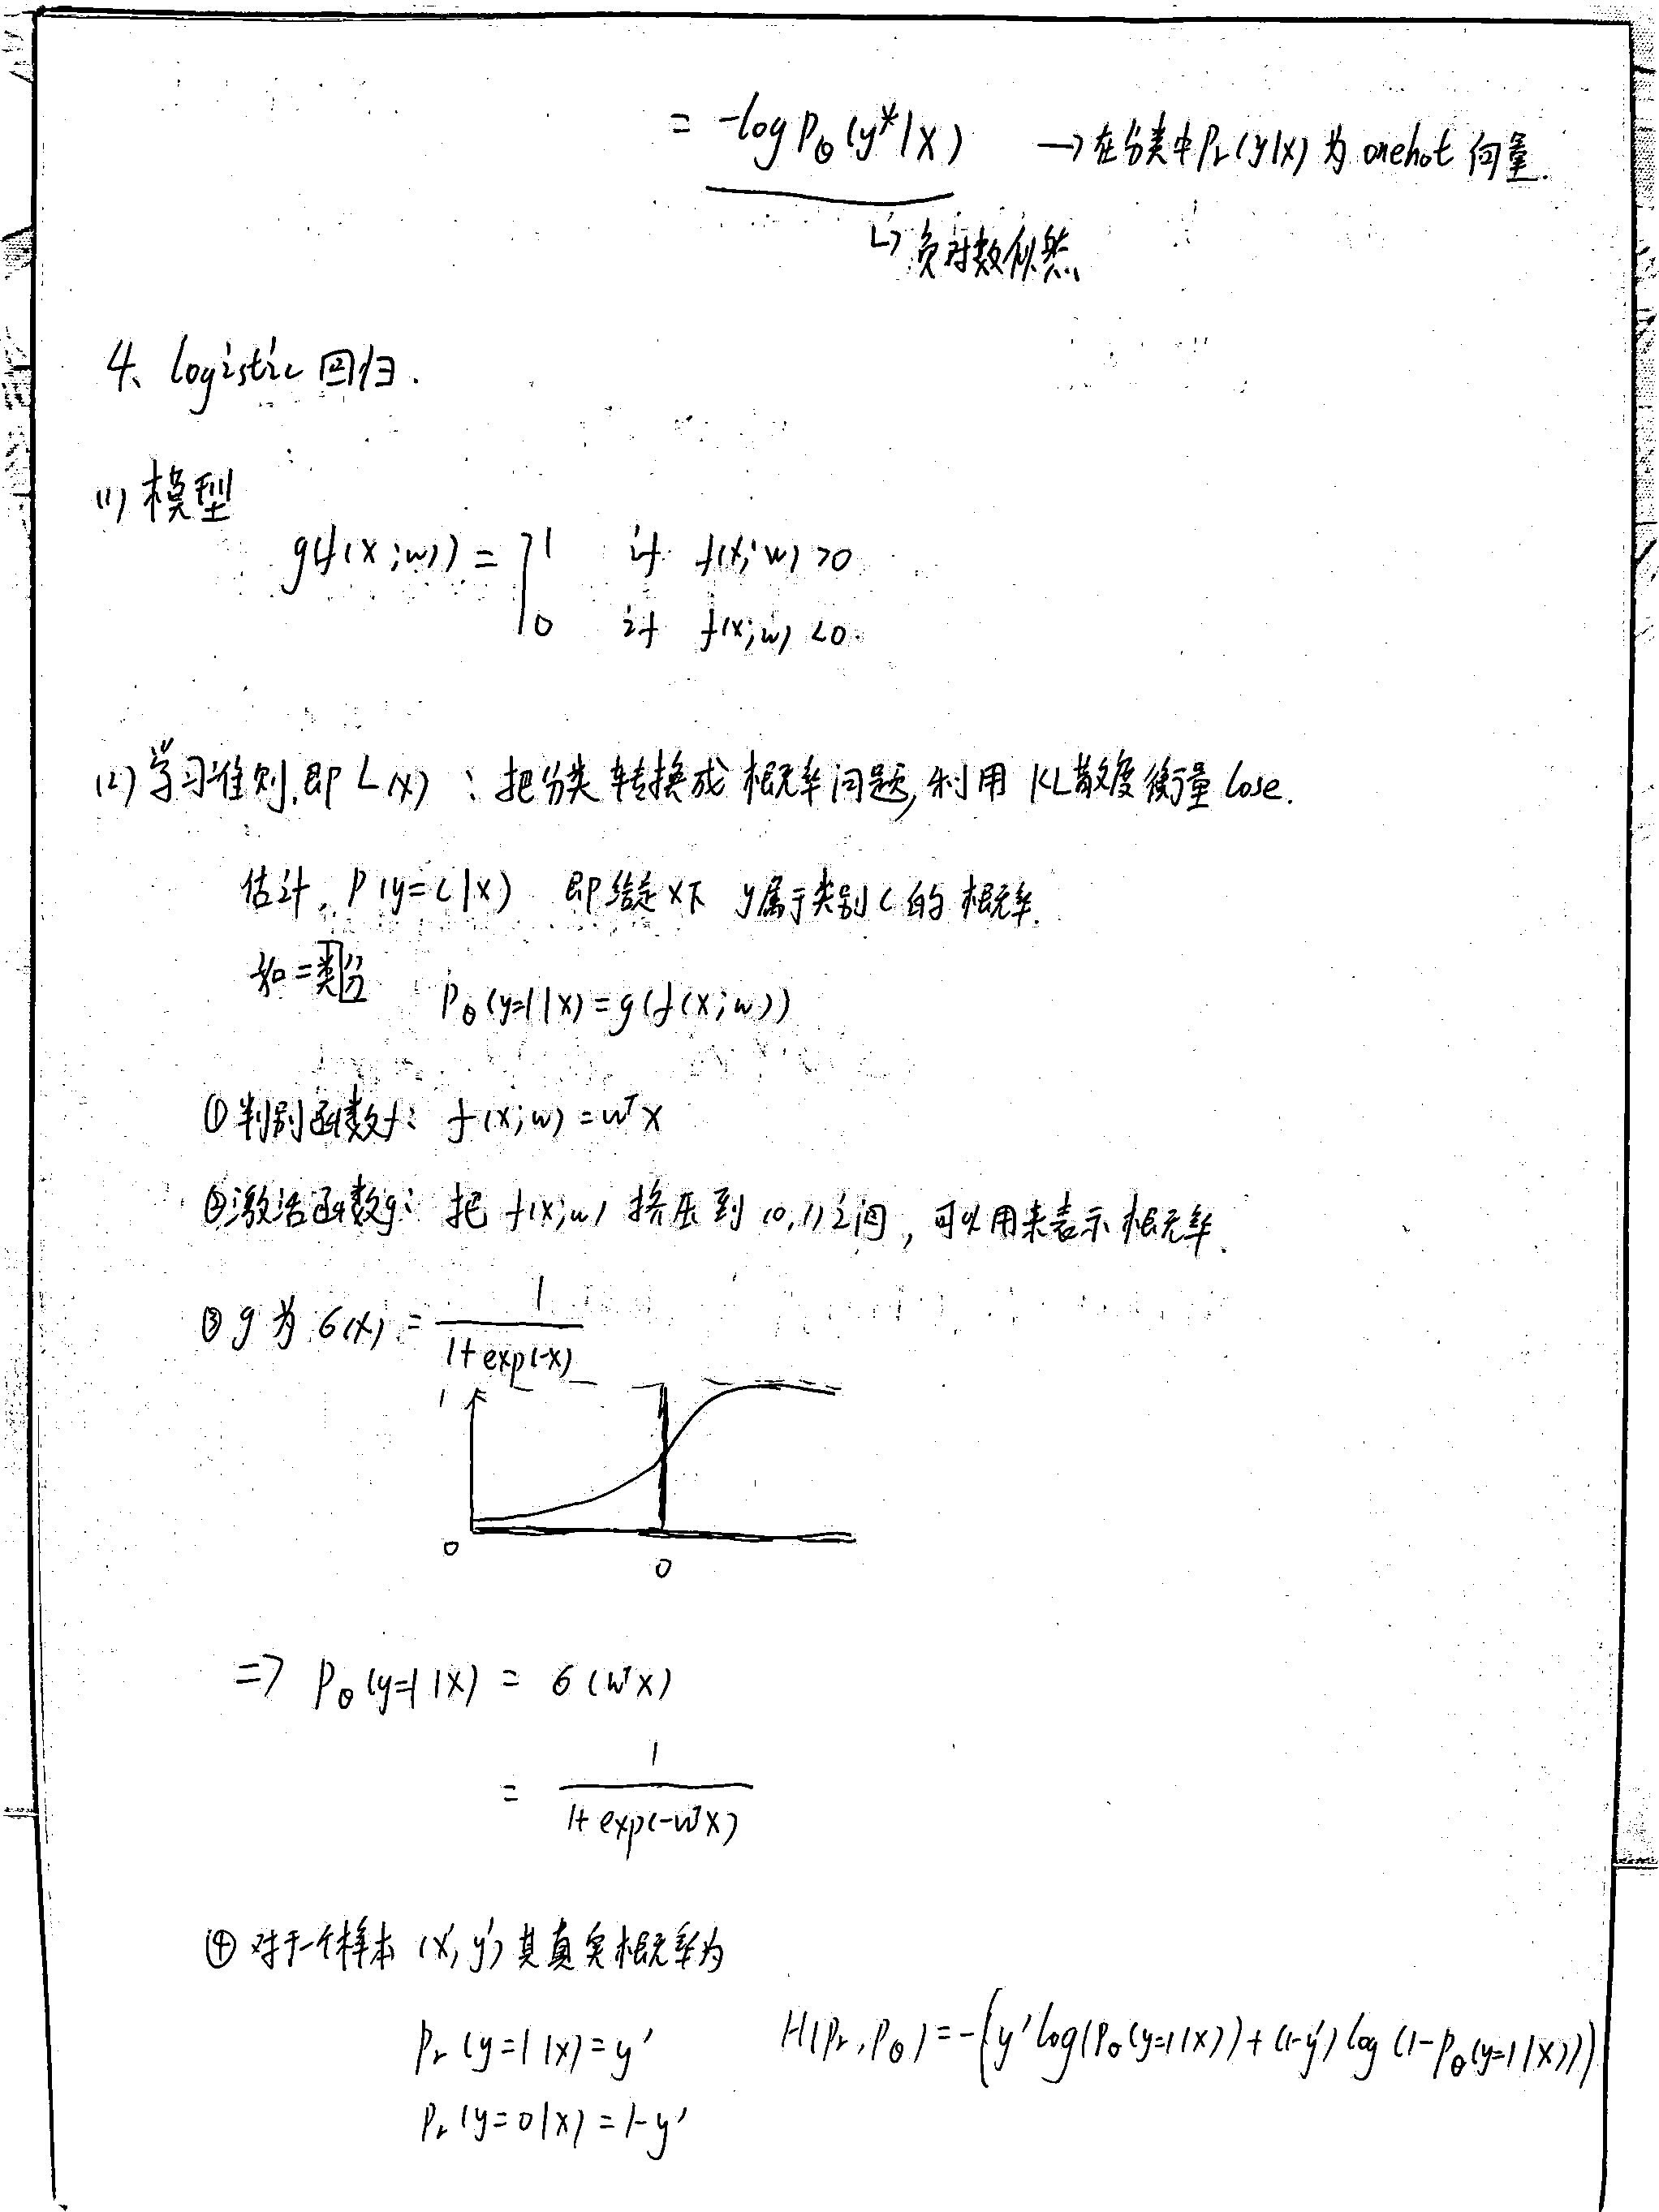 = -log Pθ(y*|x) → 在分类中Pr(y|x) 为 onehot 向量.
↳ 负对数似然
4、logistic 回归.
(1) 模型
g(f(x;w)) = { 1 if f(x;w) >0
0 if f(x;w) <0.
(2) 学习准则,即 L(x) : 把分类转换成 概率问题,利用 KL散度衡量 lose.
估计, P(y=c|x) 即给定x下 y属于类别c的概率.
如二类分 Pθ(y=1|x)=g(f(x;w))
① 判别函数f: f(x;w)=wᵀx
② 激活函数g: 把 f(x;w) 挤压到 (0,1)之间, 可以用来表示概率.
③ g 为 σ(x) = 1 / (1+exp(-x))
1
0
0
=> Pθ(y=1|x) = σ(wᵀx)
= 1 / (1+exp(-wᵀx))
④ 对于一个样本 (x',y') 其真实概率为
Pr(y=1|x)=y' H(Pr,Pθ)=-(y'log(Pθ(y=1|x))+(1-y')log(1-Pθ(y=1|x)))
Pr(y=0|x)=1-y'